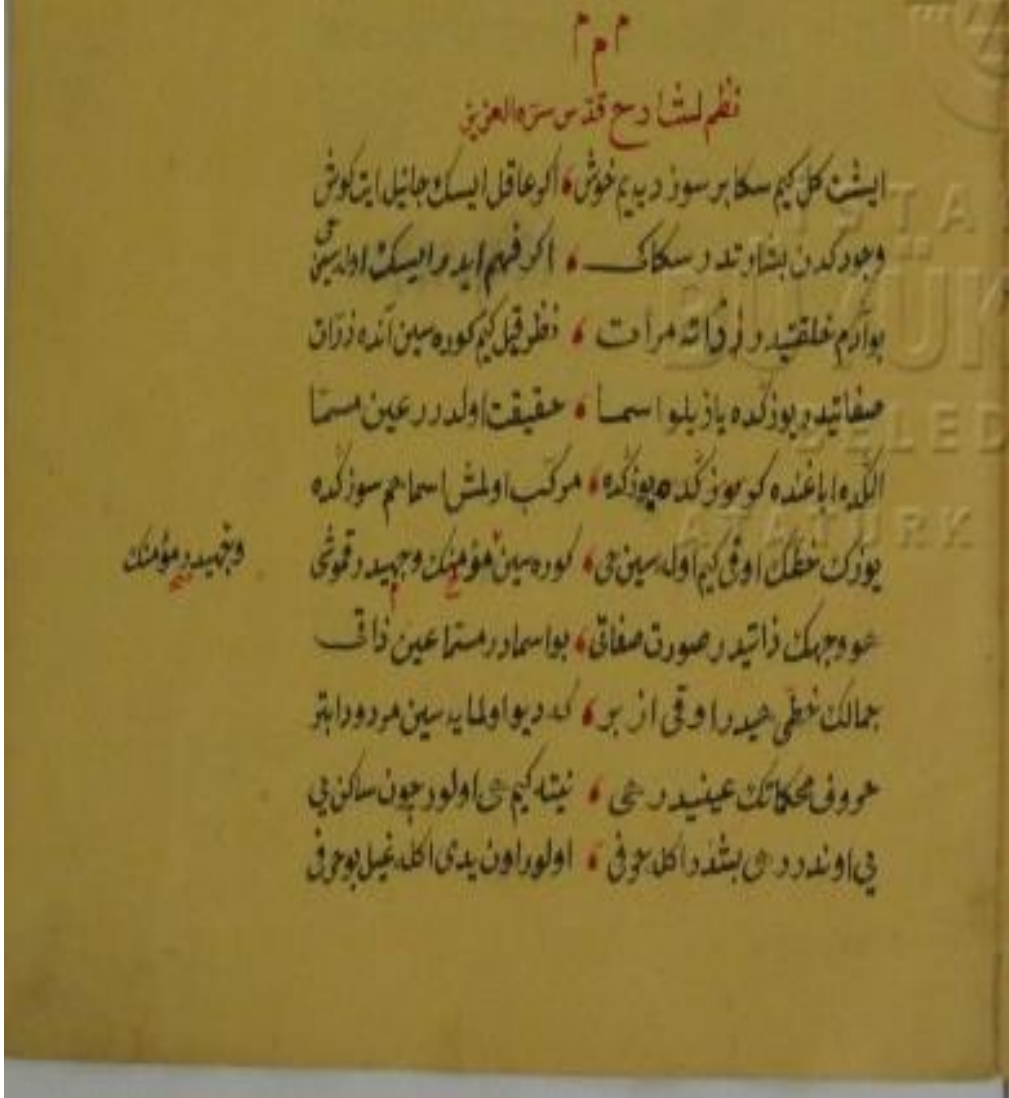 م م م
نظم لشارح قدس سره العزيز
ايشت كل كيم سكا بر سوز ديديم خوش ، اكر عاقل ايسك جانيله ايت كوش
وجودكدن بشارتدر سكا كـ ، اكر فهم ايدر ايسك اوله سين حى
بو آدم خلقتيدر ذاته مرات ، نظر قيل كيم كوره سين آنده ذرات
صفاتيدر يوزكده يازيلو اسما ، حقيقت اولدرر عين مسما
الكده اياغنده كوزكده يوزكده ، مركب اولمش اسما هم سوزكده
يوزك خطك اوقى كيم اوله سين حى ، كوره سين مؤمنك وجهيدر قموشى
وجهيدر مؤمنك
هو وجهك ذاتيدر صورت صفاتى ، بو اسمادر مسما عين ذاتى
جمالك خطى حيدر اوقى از بر ، كه ديو اولمايه سين مردود ابتر
حروف محكماتك عينيدر حى ، نيته كيم حى اولور چون ساكن يى
يى اوندر حى بشدر اكله حرفى ، اولور اون يدى اكله غيل بو حرفى
ISTA
BÜYÜK
BELED
ATATÜRK